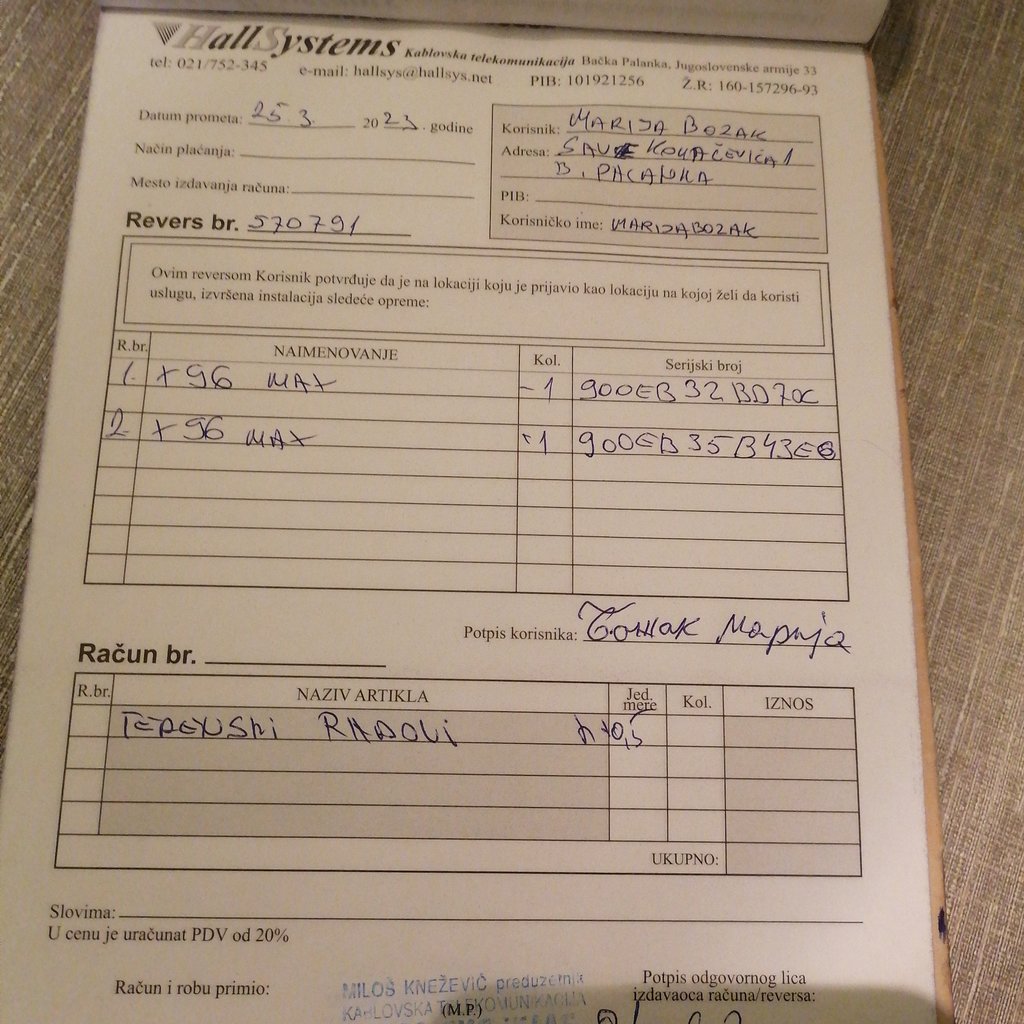 HallSystems Kablovska telekomunikacija Bačka Palanka, Jugoslovenske armije 33
tel: 021/752-345 e-mail: hallsys@hallsys.net PIB: 101921256 Ž.R: 160-157296-93
Datum prometa: 25.3. 2023. godine
Način plaćanja:
Mesto izdavanja računa:
Revers br. 570791
Korisnik: MARIJA BOZAK
Adresa: SAVE KOVAČEVIĆA 1
B. PALANKA
PIB:
Korisničko ime: MARIJABOZAK
Ovim reversom Korisnik potvrđuje da je na lokaciji koju je prijavio kao lokaciju na kojoj želi da koristi
uslugu, izvršena instalacija sledeće opreme:
R.br. NAIMENOVANJE Kol. Serijski broj
1. X96 MAX -1 900EB32BD70C
2. X96 MAX 1 900EB35B43E6
Potpis korisnika: Божак Марија
Račun br.
R.br. NAZIV ARTIKLA Jed. mere Kol. IZNOS
TERENSKI RADOVI
UKUPNO:
Slovima:
U cenu je uračunat PDV od 20%
Račun i robu primio:
MILOŠ KNEŽEVIĆ preduzetnik
KABLOVSKA TELEKOMUNIKACIJA
(M.P.)
Potpis odgovornog lica
izdavaoca računa/reversa: